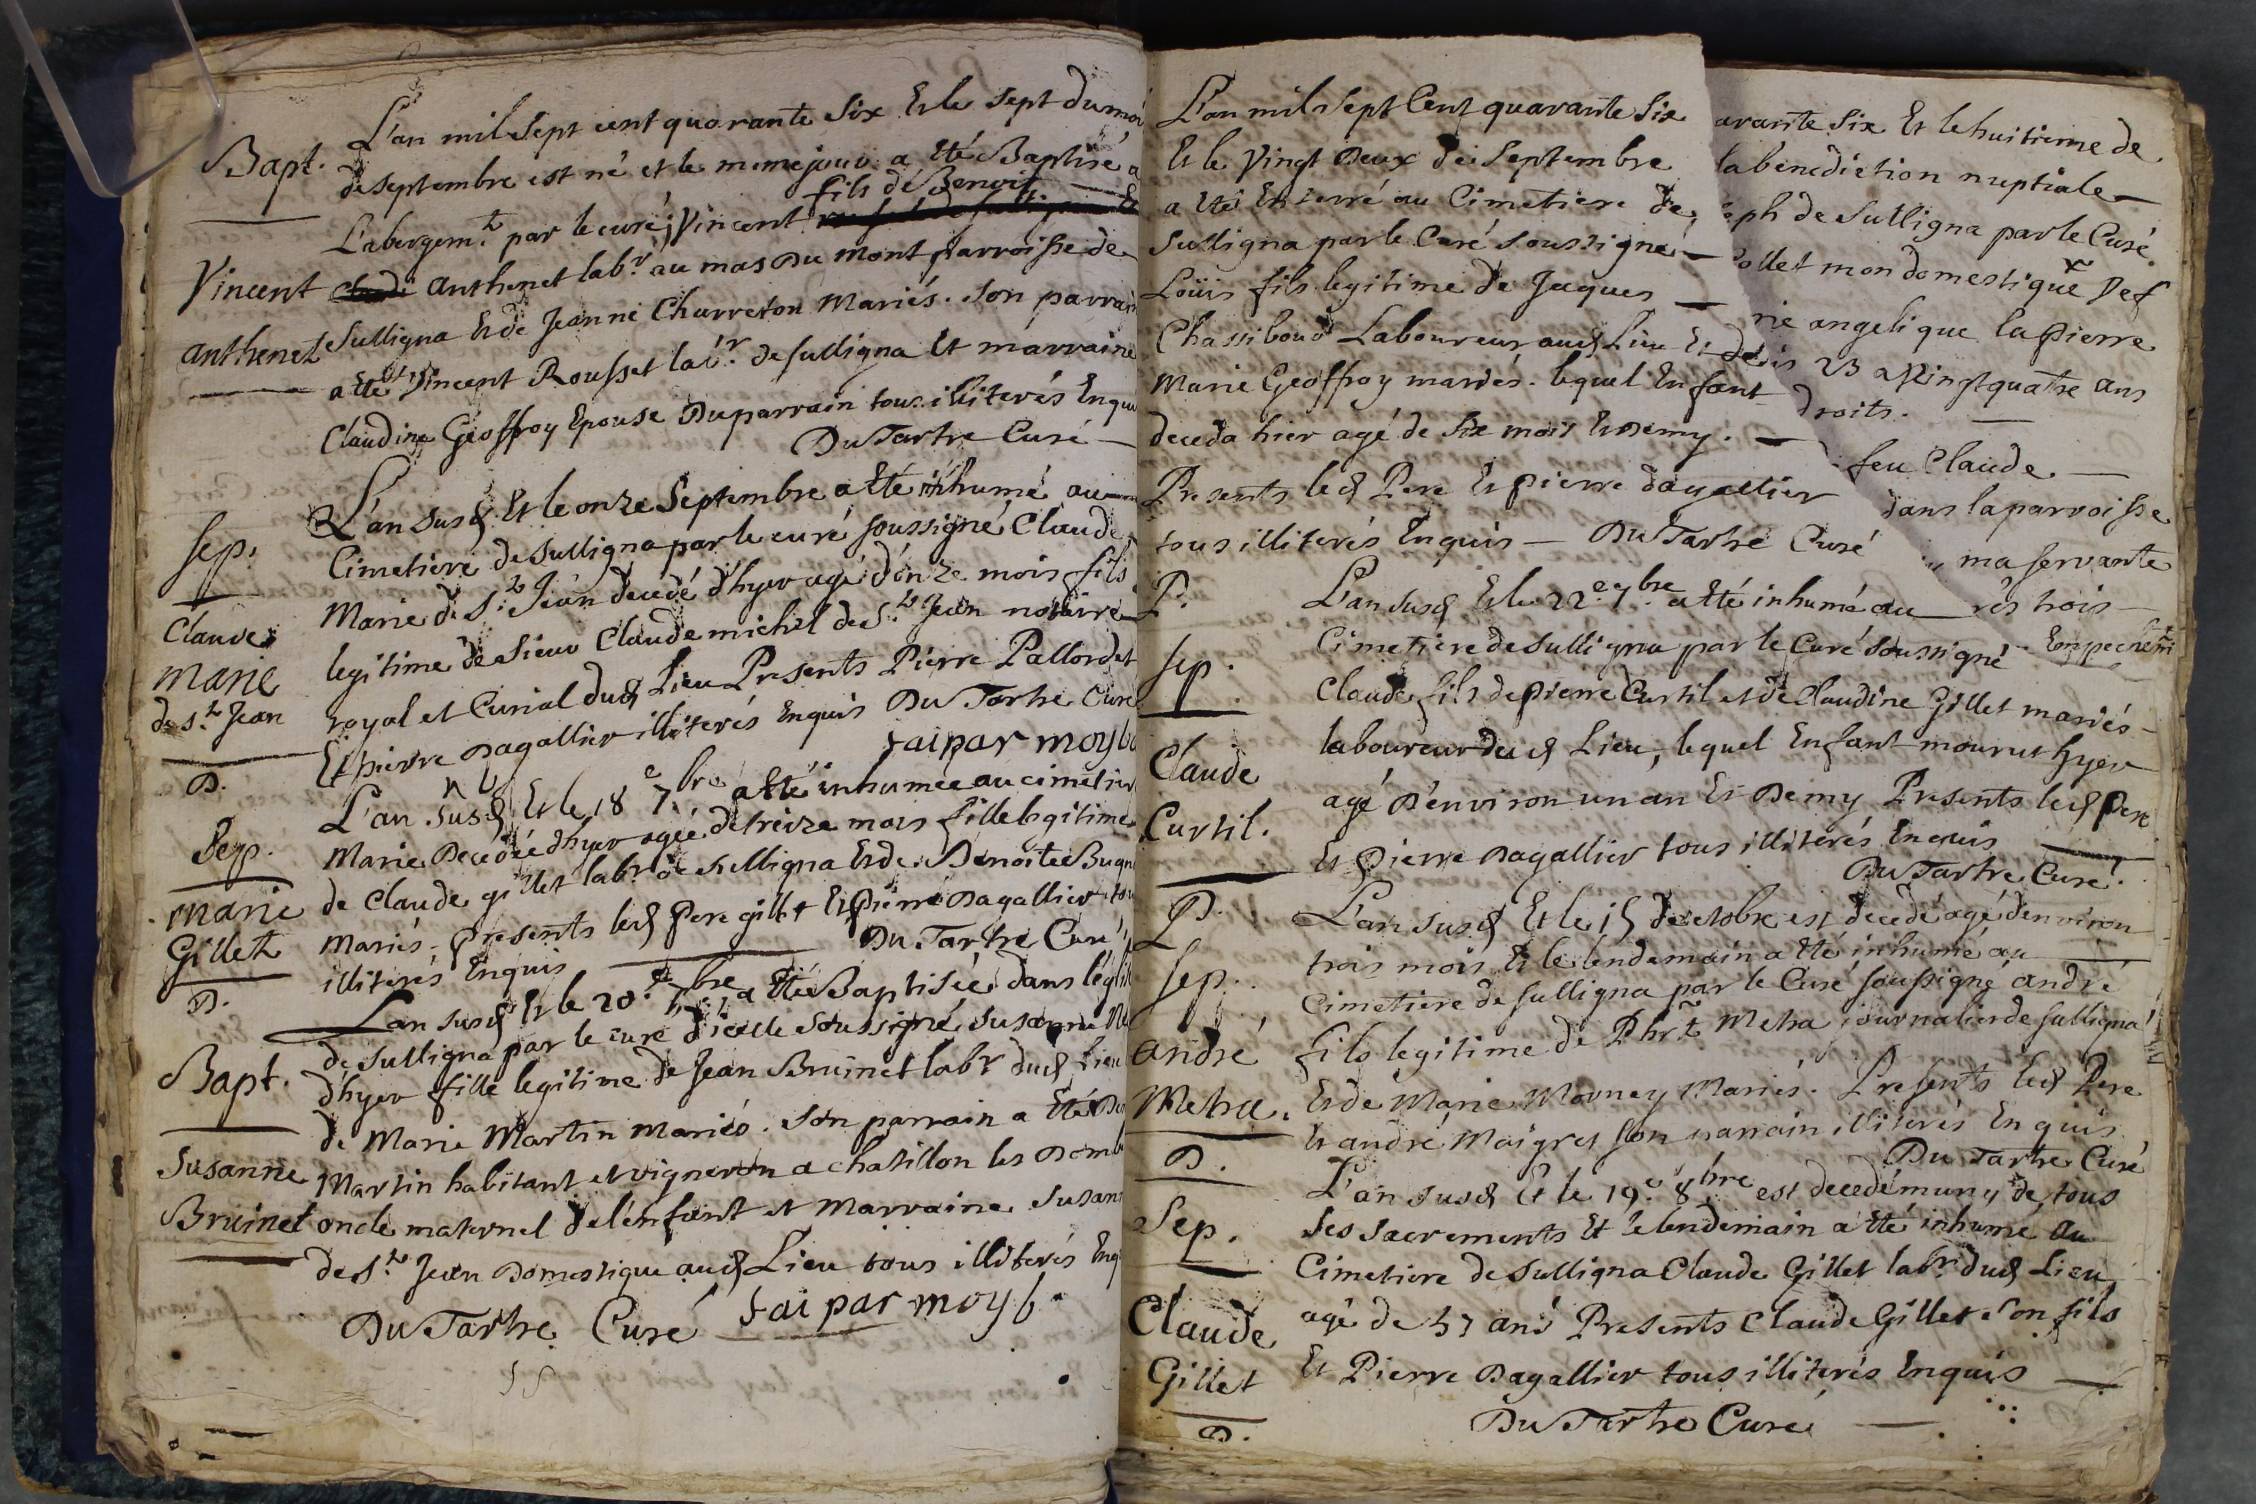 Bapt.
Vincent
anthenet
L'an mil sept cent quarante six Et le sept du moi
de septembre est né et le meme jour a Eté Baptisé a
L'abergem.t par le curé Vincent fils de Benoit
anthenet lab.r au mas Du mont parroisse de
Sulligna Et de Jeanne Charreton Mariés. Son parrain
a Eté Vincent Rousset lab.r de sulligna Et marraine
Claudine Geoffroy Epouse Du parrain tous illiterés Enqu
Du Tartre Curé
Sep.
Claude
Marie
de s.t Jean
D.
L'an susd Et le onze Septembre a Eté inhumé au
Cimetiere de Sulligna par le curé soussigné Claude
Marie de S.t Jean decedé d'hyer agé d'onze mois fils
legitime de Sieur Claude michel de S.t Jean notaire
royal et Curial dud Lieu Presents Pierre Pallordet
Et pierre Dagallier illiterés Enquis Du Tartre Curé
fai par moy
Sep.
Marie
Gillet
D.
L'an susd Et le 18e 7.bre a Eté inhumée au cimetier
Marie Decedée d'hyer agée de treize mois fille legitime
de Claude gillet lab.r de sulligna Et de Benoite Bugn
Mariés. Presents led Pere gillet Et pierre Dagallier tou
illiterés Enquis Du Tartre Curé
Bapt.
Susanne
Bruinet
L'an susd Et le 20.e 7.bre a Eté Baptisée dans l'églis
de Sulligna par le curé d'icelle soussigné susanne Né
d'hyer fille legitime de Jean Bruinet lab.r dud Lieu
de Marie Martin Mariés. Son parrain a Eté
Martin habitant et vigneron a chatillon les Domb
oncle maternel de l'enfant et Marraine Susan
de s.t Jean Domestique aud Lieu tous illiterés Enq
Du Tartre Curé fai par moy
L'an mil sept Cent quarante six
Et le Vingt Deux de Septembre
a Eté Enterré au Cimetiere de
Sulligna par le Curé soussigné
Loüis fils legitime de Jaques
Chassiboud Laboureur aud Lieu Et de
Marie Geoffroy mariés. lequel Enfant
deceda hier agé de Six mois Et Demy.
Presents led Pere Et pierre dagallier
tous illiterés Enquis Du Tartre Curé
arante six Et le huitieme de
la benediction nuptiale
eph de Sulligna par le Curé
ollet mon domestique
rie angelique la pierre
23 a Vingt quatre ans
droits.
feu Claude
dans la parroisse
ma servante
rés trois
Empechem
P.
Sep.
Claude
Curtil.
D.
L'an susd Et le 22.e 7.bre a Eté inhumé au
Cimetiere de Sulligna par le Curé soussigné
Claude fils de pierre Curtil et de Claudine Gillet mariés
laboureur dud Lieu, lequel Enfant mourut hyer
agé D'environ un an Et Demy Presents led Pere
Et Pierre Dagallier tous illiterés Enquis
Du Tartre Curé.
Sep.
andré
Metra.
D.
L'an susd Et le 15 d'octobre est decedé agé d'environ
trois mois Et le lendemain a Eté inhumé au
Cimetiere de sulligna par le Curé soussigné andré
fils legitime de Metra journalier de sulligna
Et de Marie Morney Mariés. Presents led Pere
Et andré Maigret son parrain illiterés Enquis
Du Tartre Curé
Sep.
Claude
Gillet
D.
L'an susd Et le 19.e 8.bre est decedé muny de tous
Ses Sacrements Et le lendemain a Eté inhumé au
Cimetiere de Sulligna Claude Gillet lab.r dud Lieu
agé de 57 ans Presents Claude Gillet son fils
Et Pierre Dagallier tous illiterés Enquis
Du Tartre Curé